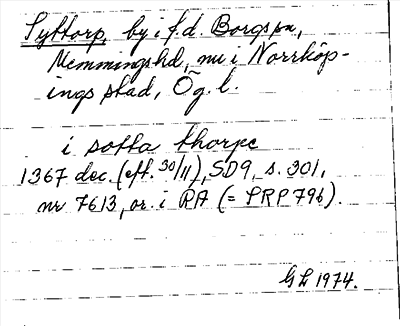 Syltorp, by i f.d. Borgs sn,
Memmingshd, nu i Norrköp-
ings stad, Ög. l.
i solta thorpe
1367 dec. (eft. 30/11), SD9, s. 301,
nr 7613, or. i RA (= PRP 796).
GL 1974.